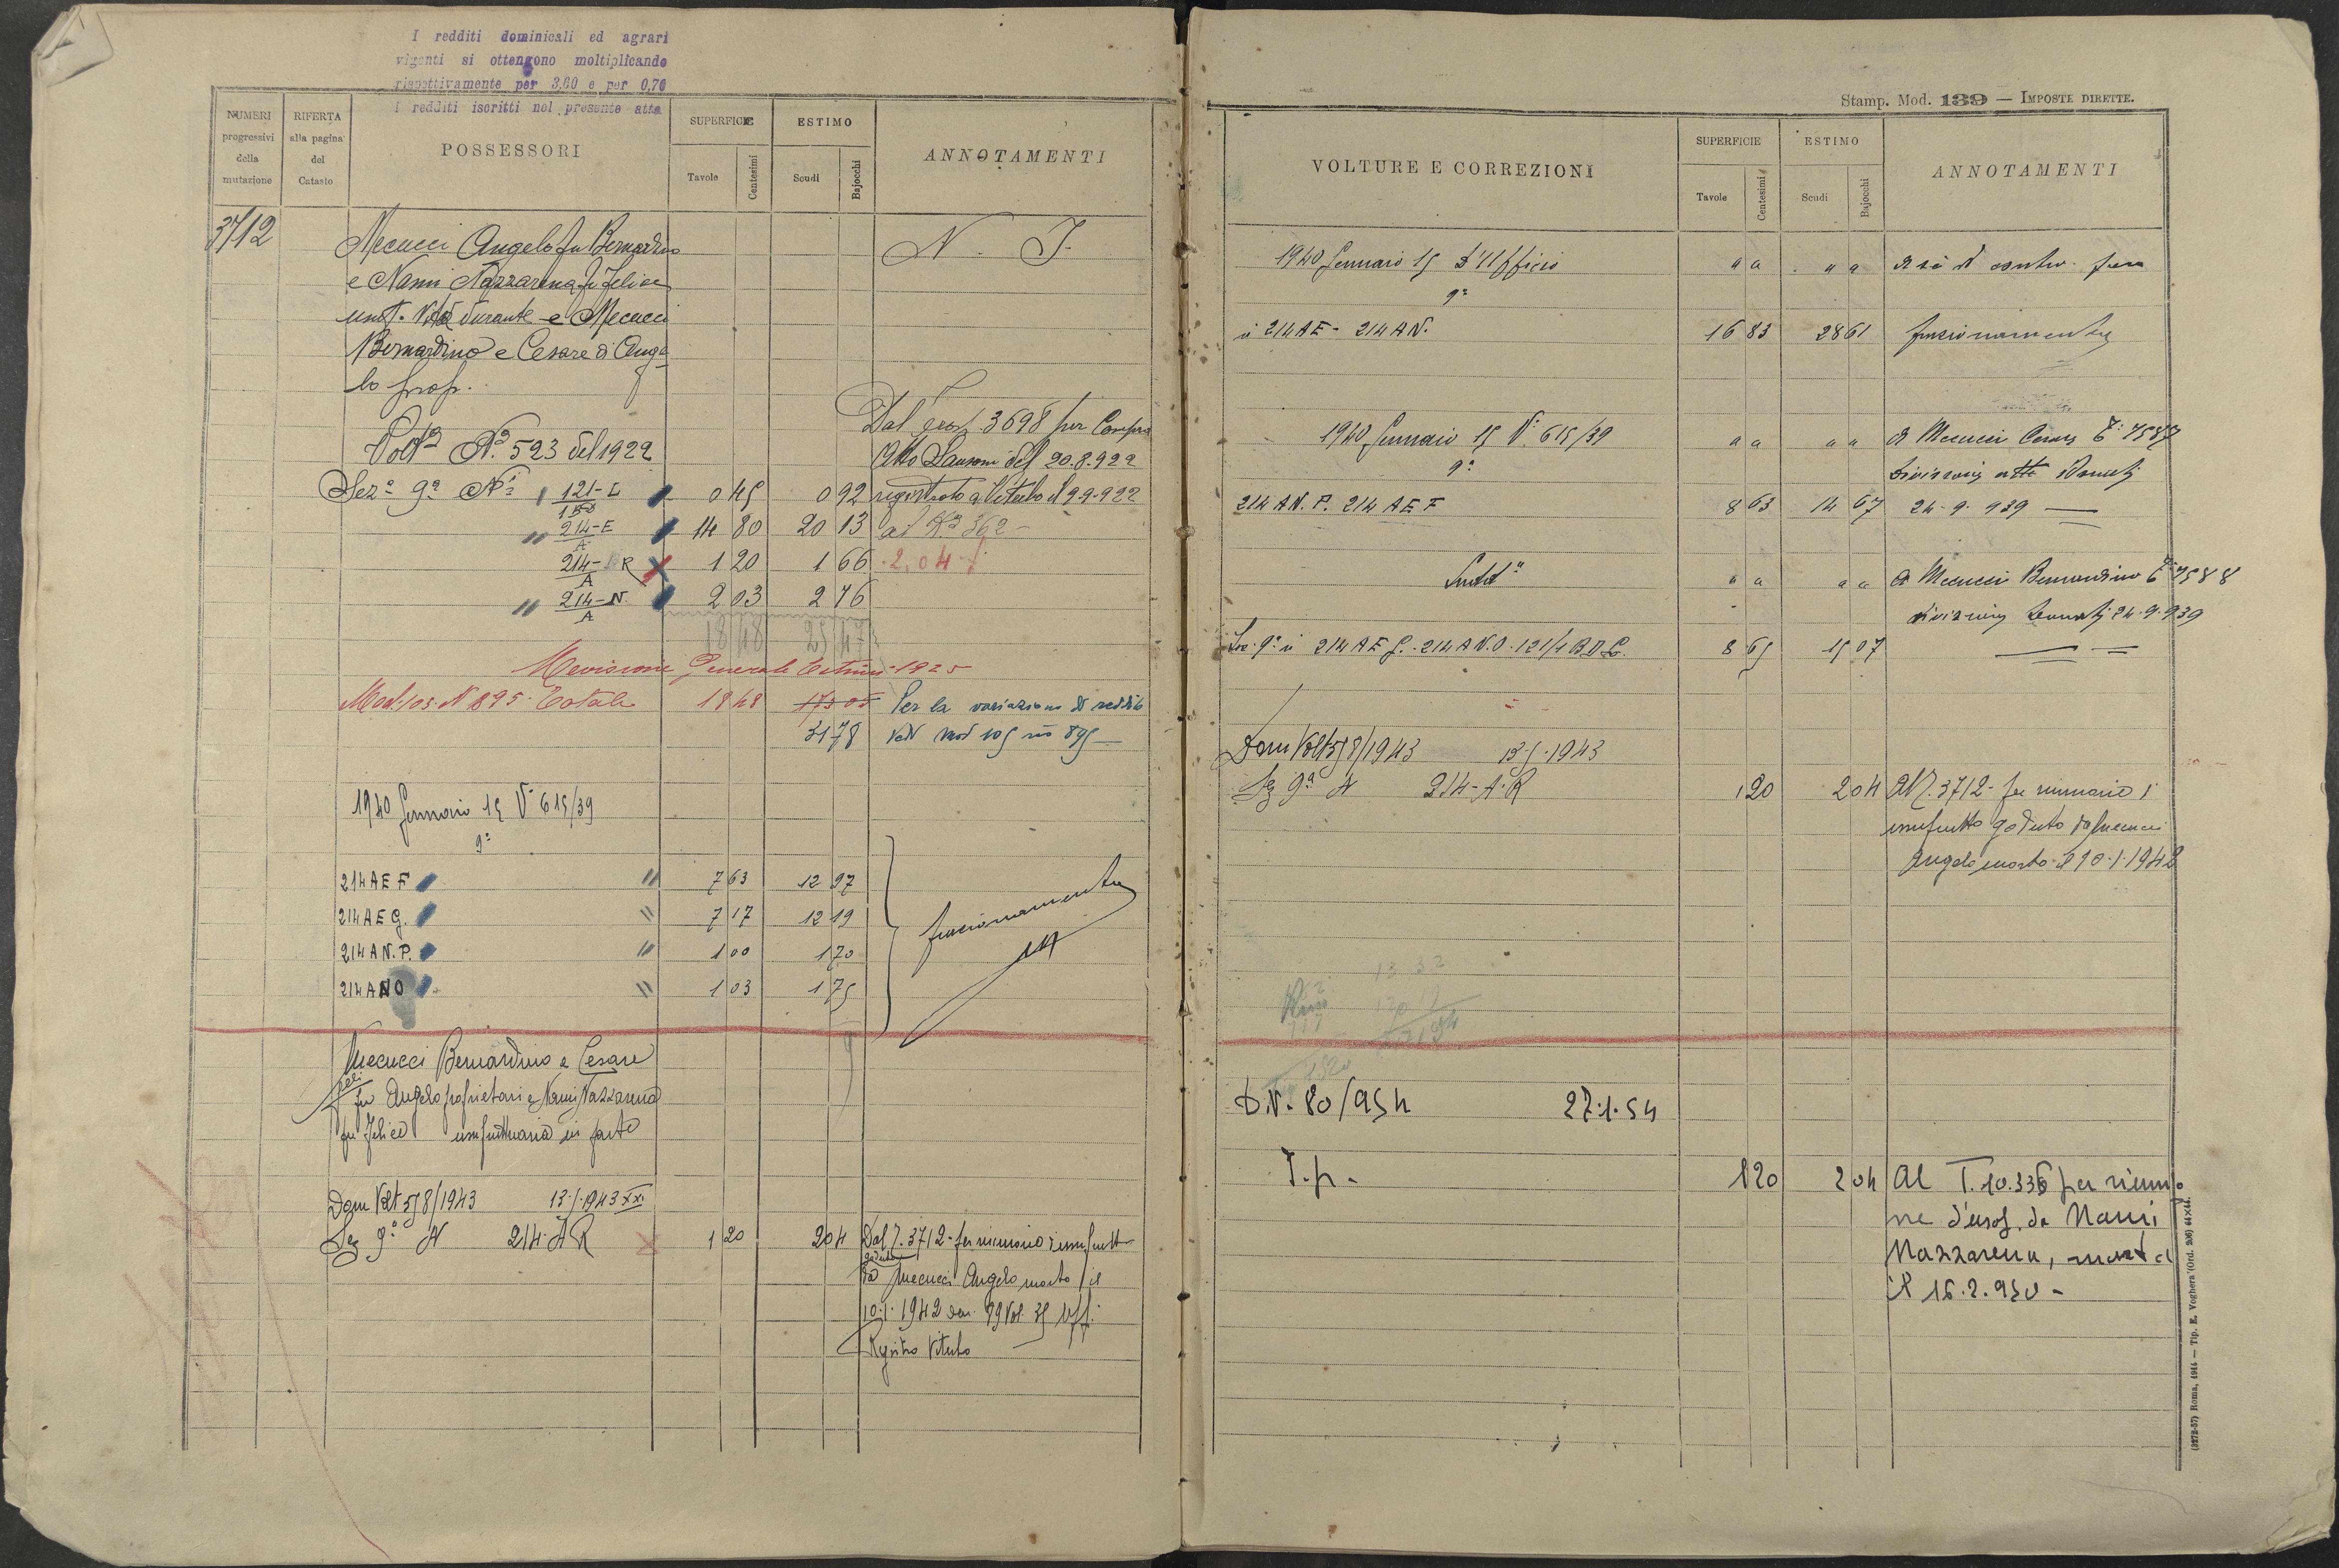 I redditi dominicali ed agrari
vigenti si ottengono moltiplicando
rispettivamente per 3,60 e per 0,76
i redditi iscritti nel presente atto
NUMERI progressivi della mutazione
RIFERTA alla pagina del Catasto
POSSESSORI
SUPERFICIE
Tavole Centesimi
ESTIMO
Scudi Bajocchi
ANNOTAMENTI
3712 Mecucci Angelo fu Bernardino N. I.
e Nanni Nazzarena fu Felice
usuf. vita durante e Mecucci
Bernardino e Cesare di Ange
lo prop.
Dal 3698 per Compra
Volt.a N.o 523 del 1922
Atto del 20.8.922
Sez.a 9a Ni 121-L 0 45 0 92 registrato a Viterbo il 9.9.922
" 214-E/A 14 80 20 13 al N.o 362 -
214-R/A 1 20 1 66 2.04
" 214-N/A 2 03 2 76
18 48 25 47
Revisione Generale Estimi 1925
Mod. 105 N 895 Totale 18 48 Per la variazione di reddito
31 78 Ved mod 105 no 895
1940 Gennaio 15 V. 615/39
9a
214 A E F " 7 63 12 97
214 A E G. " 7 17 12 19 frazionamento
214 A N. P. " 1 00 1 70
214 A N O " 1 03 1 75
Mecucci Bernardino e Cesare
fu Angelo proprietari e Nanni Nazzarena
fu Felice usufruttuaria in parte
Dom Volt 578/1943 13.5.1943 XXI
Sez 9a N 214. A R 1 20 2 04 Dal T. 3712 - per riunione usufrutto
goduto
da Mecucci Angelo morto il
10.1.1942 den. 99 Vol. 35 Uff.
Registro Viterbo
Stamp. Mod. 139 — IMPOSTE DIRETTE.
VOLTURE E CORREZIONI
SUPERFICIE
Tavole Centesimi
ESTIMO
Scudi Bajocchi
ANNOTAMENTI
1940 Gennaio 15 D'Ufficio " " " " A sè di contro per
9a
n 214 A E - 214 A N. 16 83 28 61 frazionamento
1940 Gennaio 15 V. 615/39 " " " " A Mecucci Cesare T. 7587
9a divisione atto Donati
214 A N. P. 214 A E F 8 63 14 67 24.9.939
Sudd.a " " " " A Mecucci Bernardino T. 7588
divisione Donati 24.9.939
Sez. 9a n 214 A E G. 214 A N. O. 8 65 15 07
Dom Volt 578/1943 13.5.1943
Sez 9a N 214-A-R 1 20 2 04 Al T. 3712 - per riunione di
usufrutto goduto da Mecucci
Angelo morto il 10.1.1942
D.V. 80/954 27.1.54
T.p. 1 20 2 04 Al T. 10.336 per riunio
ne d'usof. da Nanni
Nazzarena, morta
il 16.2.950 -
(3272-57) Roma, 1914 — Tip. E. Voghera (Ord. 206) 44×64.